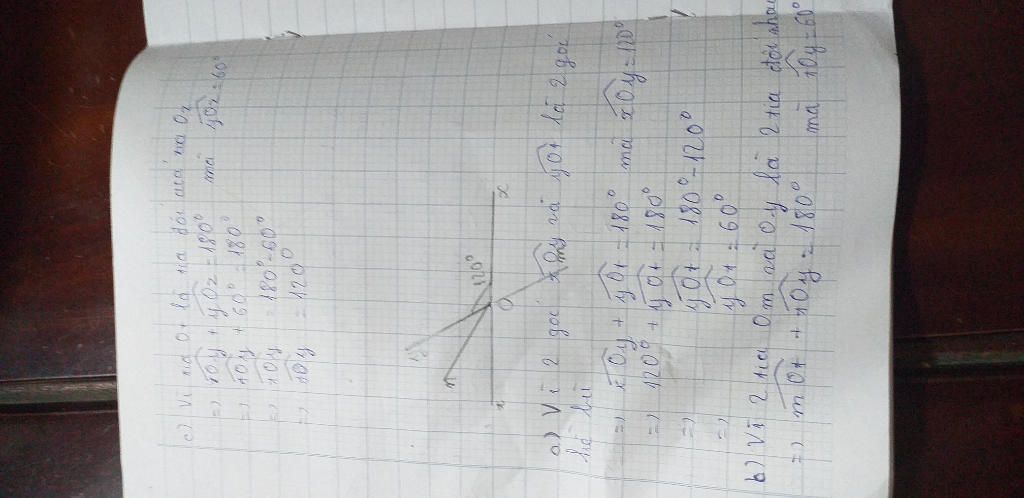 c) Vì tia Ot là tia đối của tia Oz
=> tOy + yOz = 180° mà yOz = 60°
=> tOy + 60° = 180°
=> tOy = 180° - 60°
=> tOy = 120°
120°
x
O
m
t
a) Vì 2 góc xOy và yOt là 2 góc
kề bù
=> xOy + yOt = 180° mà xOy = 120°
=> 120° + yOt = 180°
=> yOt = 180° - 120°
=> yOt = 60°
b) Vì 2 tia Om và Oy là 2 tia đối nhau
=> mOt + tOy = 180° mà tOy = 60°